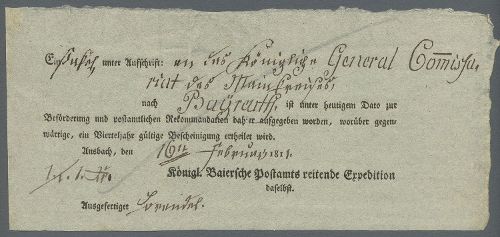 Ein unter Aufschrift: an das Königliche General Commissa,
riat des Mainkreises
nach Bayreuth, ist unter heutigem Dato zur
Beförderung und postamtlichen Rekommandation daher aufgegeben worden, worüber gegen=
wärtige, ein Vierteljahr gültige Bescheinigung ertheilet wird.
Ansbach, den 16ten Februar 1811.
Königl. Baiersche Postamts reitende Expedition
daselbst.
Ausgefertiget